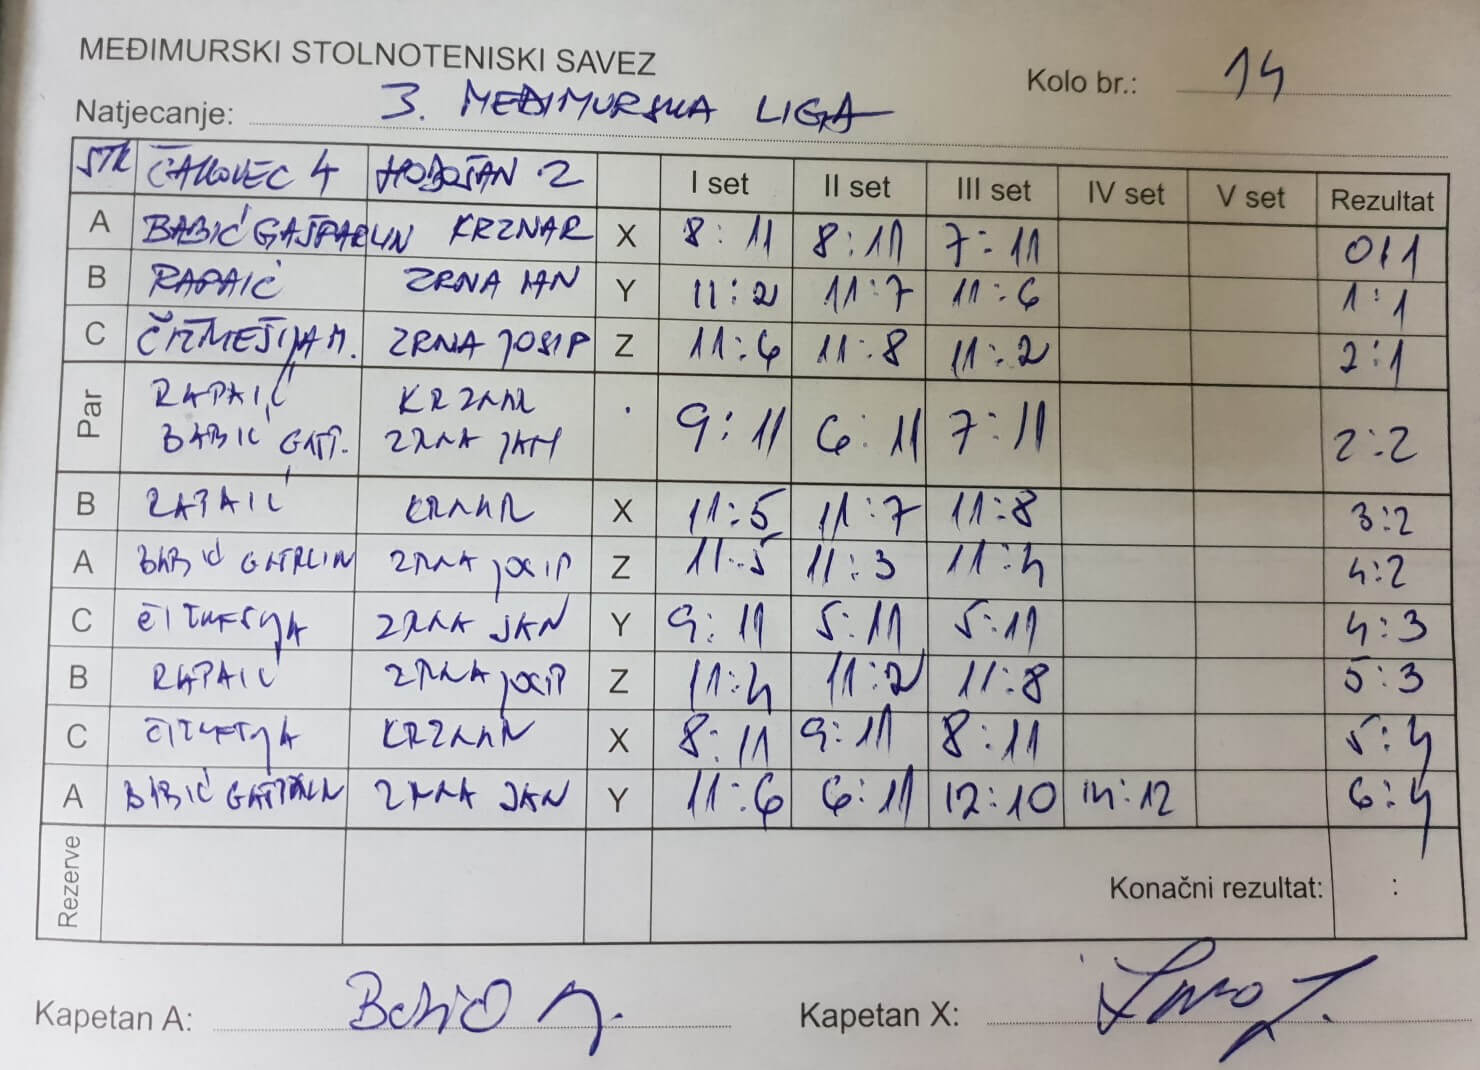 MEĐIMURSKI STOLNOTENISKI SAVEZ
Kolo br.: 14
Natjecanje: 3. MEĐIMURSKA LIGA
STK ČAKOVEC 4 HODOŠAN 2 I set II set III set IV set V set Rezultat
A BABIĆ GAŠPARLIN KRZNAR X 8:11 8:11 7:11 0:1
B RAPAIĆ ZRNA JAN Y 11:2 11:7 11:6 1:1
C ČIZMEŠIJA M. ZRNA JOSIP Z 11:6 11:8 11:2 2:1
Par RAPAIĆ KRZNAR 9:11 6:11 7:11 2:2
BABIĆ GAŠP. ZRNA JAN
B RAPAIĆ KRZNAR X 11:5 11:7 11:8 3:2
A BABIĆ GAŠPARLIN ZRNA JOSIP Z 11:5 11:3 11:4 4:2
C ČIZMEŠIJA ZRNA JAN Y 9:11 5:11 5:11 4:3
B RAPAIĆ ZRNA JOSIP Z 11:4 11:2 11:8 5:3
C ČIZMEŠIJA KRZNAR X 8:11 9:11 8:11 5:4
A BABIĆ GAŠPARLIN ZRNA JAN Y 11:6 6:11 12:10 14:12 6:4
Rezerve Konačni rezultat: :
Kapetan A: Kapetan X: